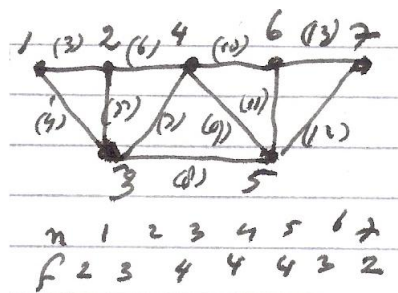 1 (3) 2 (6) 4 (10) 6 (13) 7
(4) (7) (9) (11) (12)
3 (8) 5
n 1 2 3 4 5 6 7
f 2 3 4 4 4 3 2